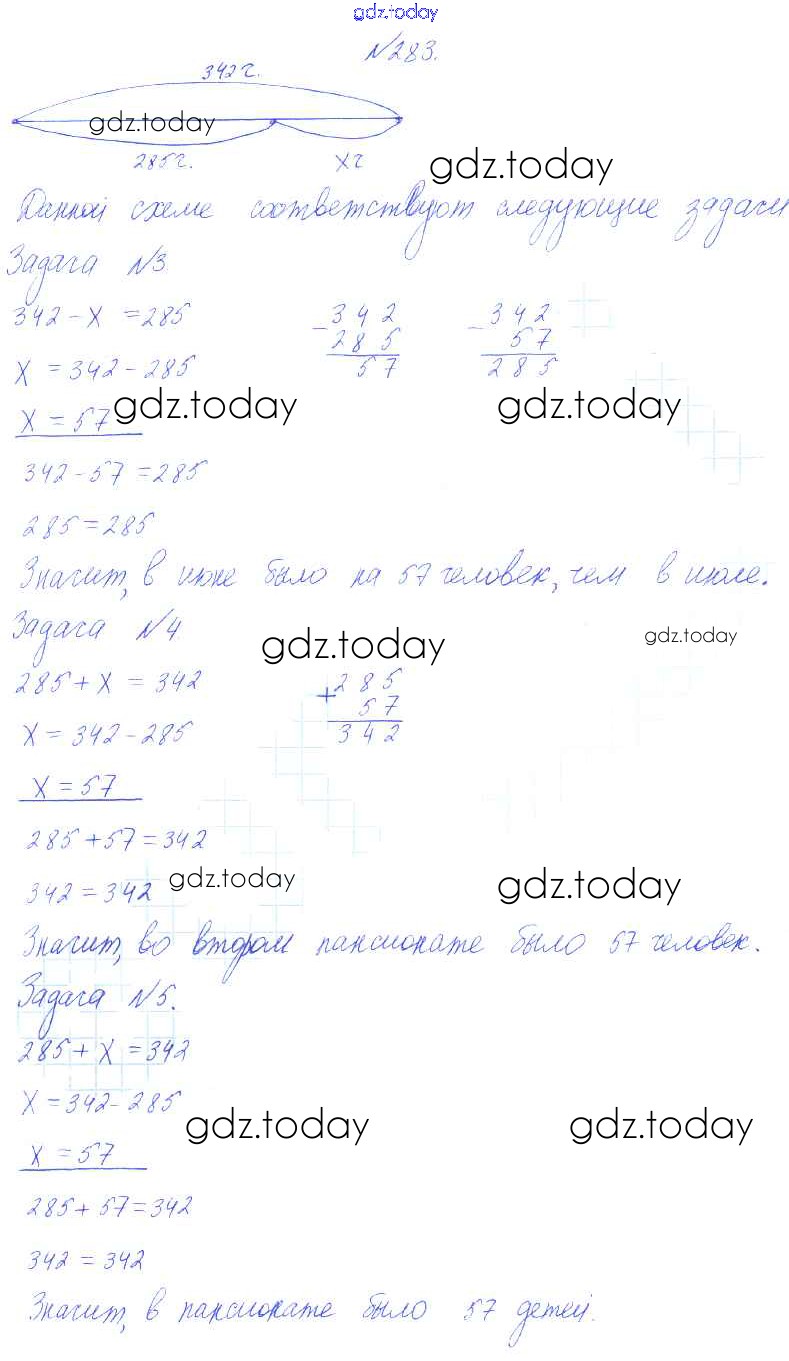 gdz.today
№283.
342г.
gdz.today
285г. xг
gdz.today
Данной схеме соответствуют следующие задачи
Задача №3
342 - x = 285
x = 342 - 285
x = 57
- 342
285
57
- 342
57
285
gdz.today gdz.today
342 - 57 = 285
285 = 285
Значит, в июне было на 57 человек, чем в июле.
Задача №4
gdz.today gdz.today
285 + x = 342
x = 342 - 285
x = 57
+ 285
57
342
285 + 57 = 342
342 = 342
gdz.today gdz.today
Значит, во втором пансионате было 57 человек.
Задача №5.
285 + x = 342
x = 342 - 285
gdz.today gdz.today
x = 57
285 + 57 = 342
342 = 342
Значит, в пансионате было 57 детей.